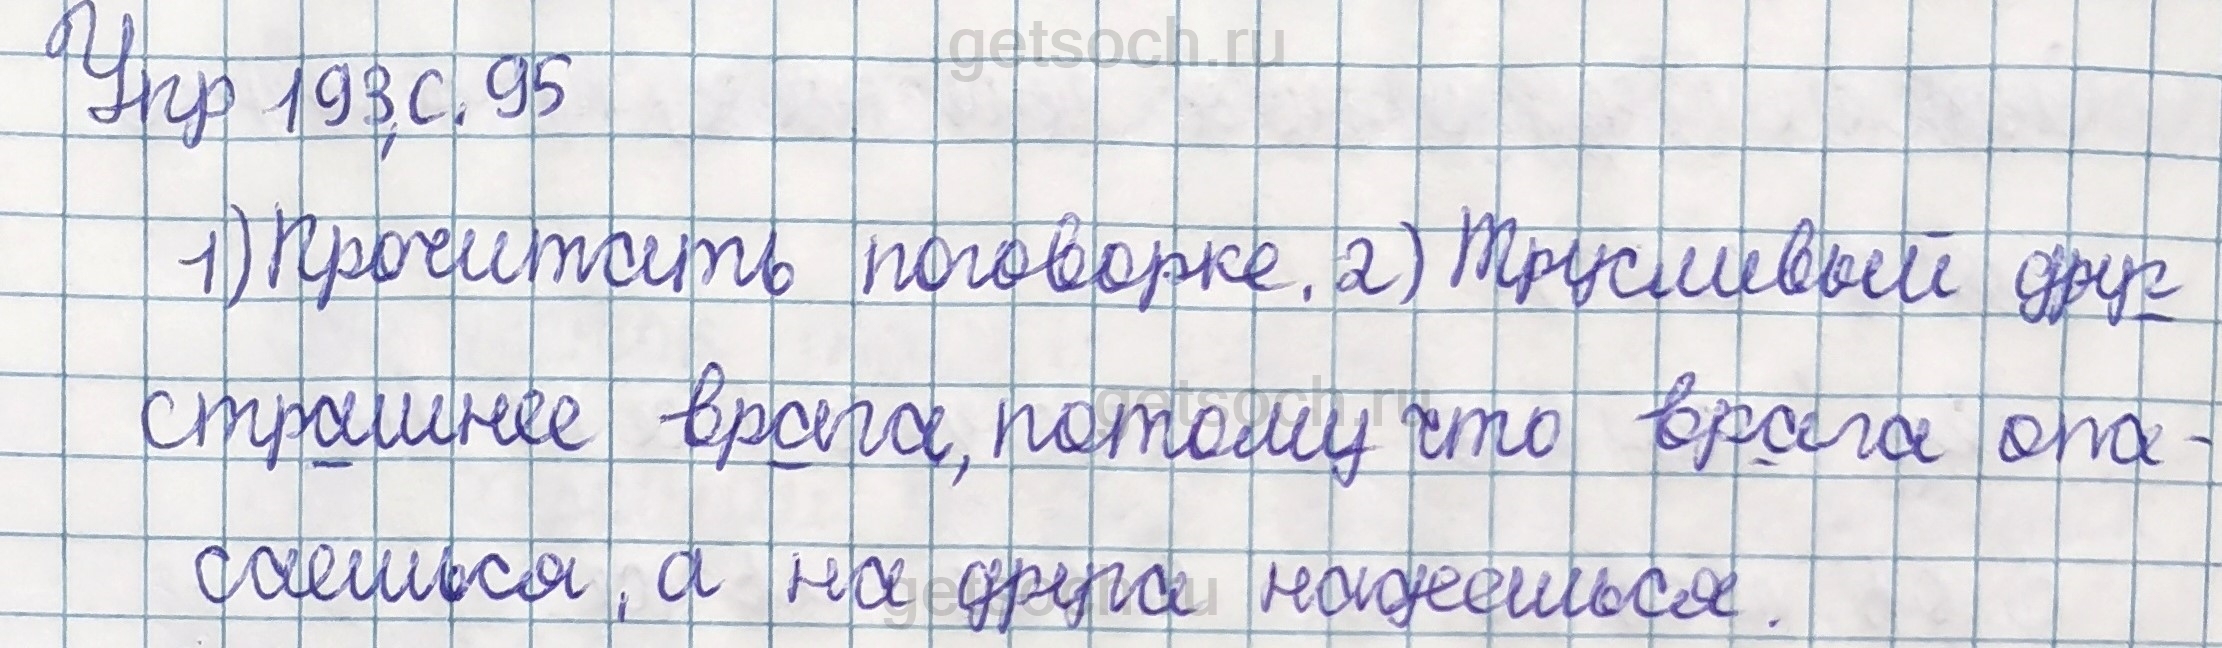 getsoch.ru
Упр 193, с. 95
1) Прочитать поговорке. 2) Трусливый друг
getsoch.ru
страшнее врага, потому что врага опа-
getsoch.ru
саешься, а на друга надеешься.